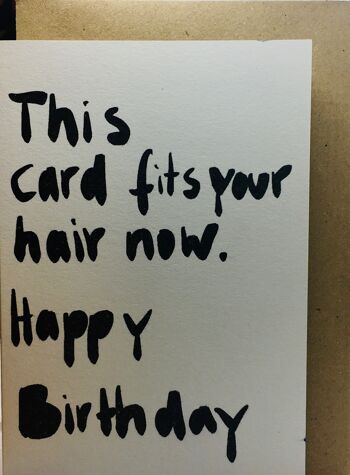 This
card fits your
hair now.
Happy
Birthday